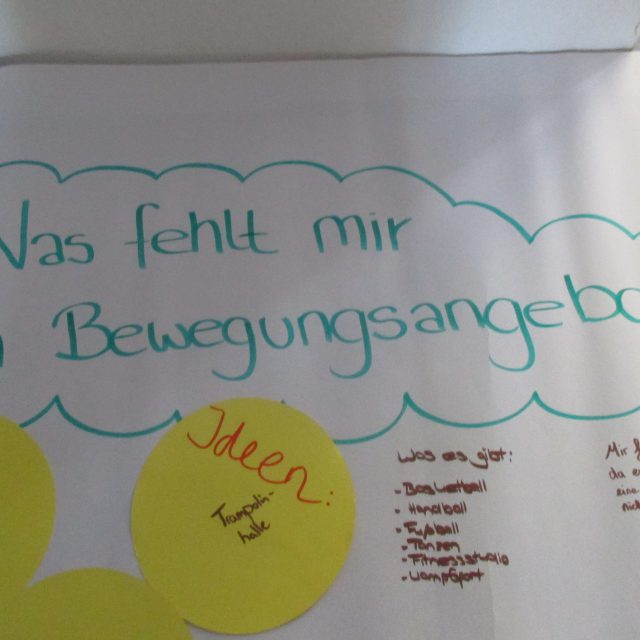 Was fehlt mir
Bewegungsangebo
Ideen:
Trampolin-
halle
Was es gibt:
- Basketball
- Handball
- Fußball
- Tanzen
- Fitnessstudio
- Kampfsport
Mir f